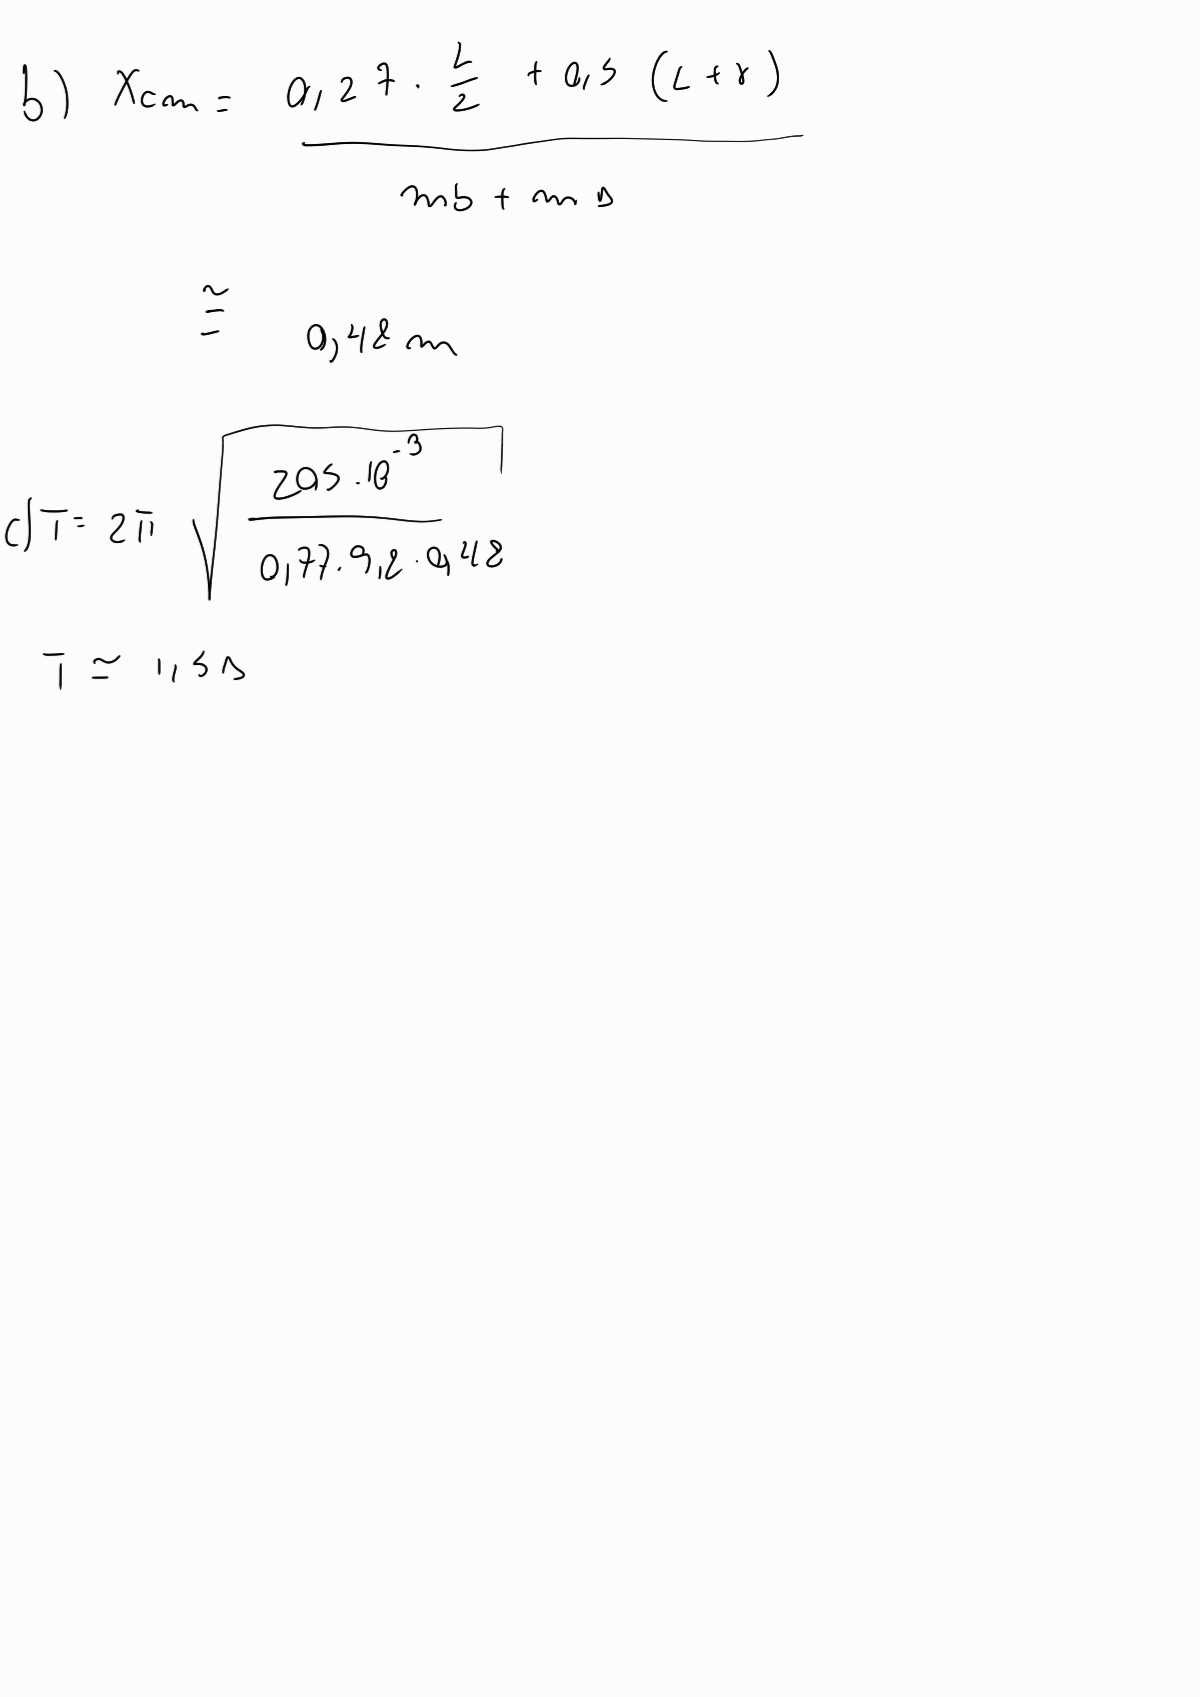 b) Xcm = 0,27 · L/2 + 0,5 (L + r)
mb + ms
≅ 0,48 m
c) T = 2π √ 205 · 10^-3
0,77 · 9,8 · 0,48
T ≅ 1,5 s